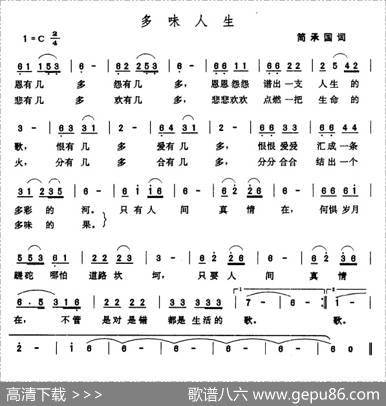 多味人生
1=C 2/4
简承国词
6̣1 153 6· 62 253 6· 66 11 66 66 2 5 42
恩有几 多 怨有几 多， 恩恩怨怨 谱出一支 人生的
悲有几 多 欢有几 多， 悲悲欢欢 点燃一把 生命的
3 - 63 31 2 - 64 31 2· 66 33 22 66
歌， 恨有几 多 爱有几 多， 恨恨爱爱 汇成一条
火， 分有几 多 合有几 多， 分分合合 结出一个
31 235 6 - 6i i6 6 - 62 26 6 - 66 61
多彩的 河。 只有人 间 真情 在， 何惧岁月
多味的 果。
蹉跎 哪怕 道路坎 坷， 只要人 间 真情
在， 不管 是对是错 都是生活的 歌。 歌。
2 - i - 6 6 6 6 6 0
高清下载 >>>
歌谱八六 www.gepu86.com